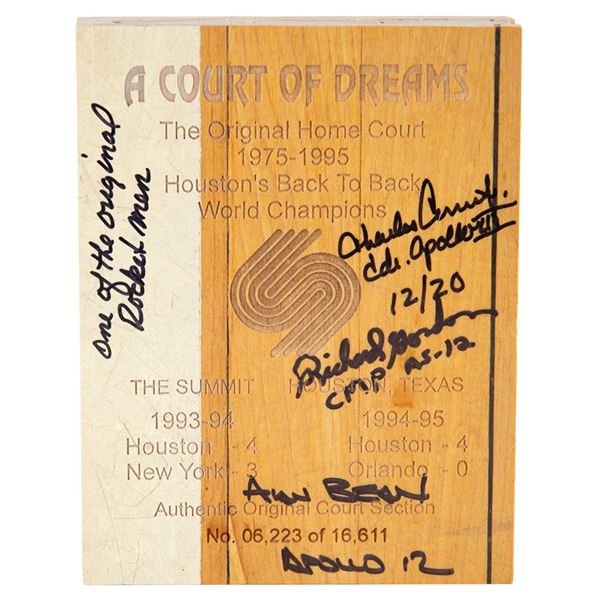 A COURT OF DREAMS
The Original Home Court
1975-1995
Houston's Back To Back
World Champions
One of the original
Rocket men
Charles Conrad Jr.
Cdr. Apollo XII
12/20
Richard Gordon
CMP AS-12
THE SUMMIT HOUSTON, TEXAS
1993-94 1994-95
Houston - 4 Houston - 4
New York - 3 Orlando - 0
Alan BEAN
Authentic Original Court Section
No. 06,223 of 16,611
APOLLO 12